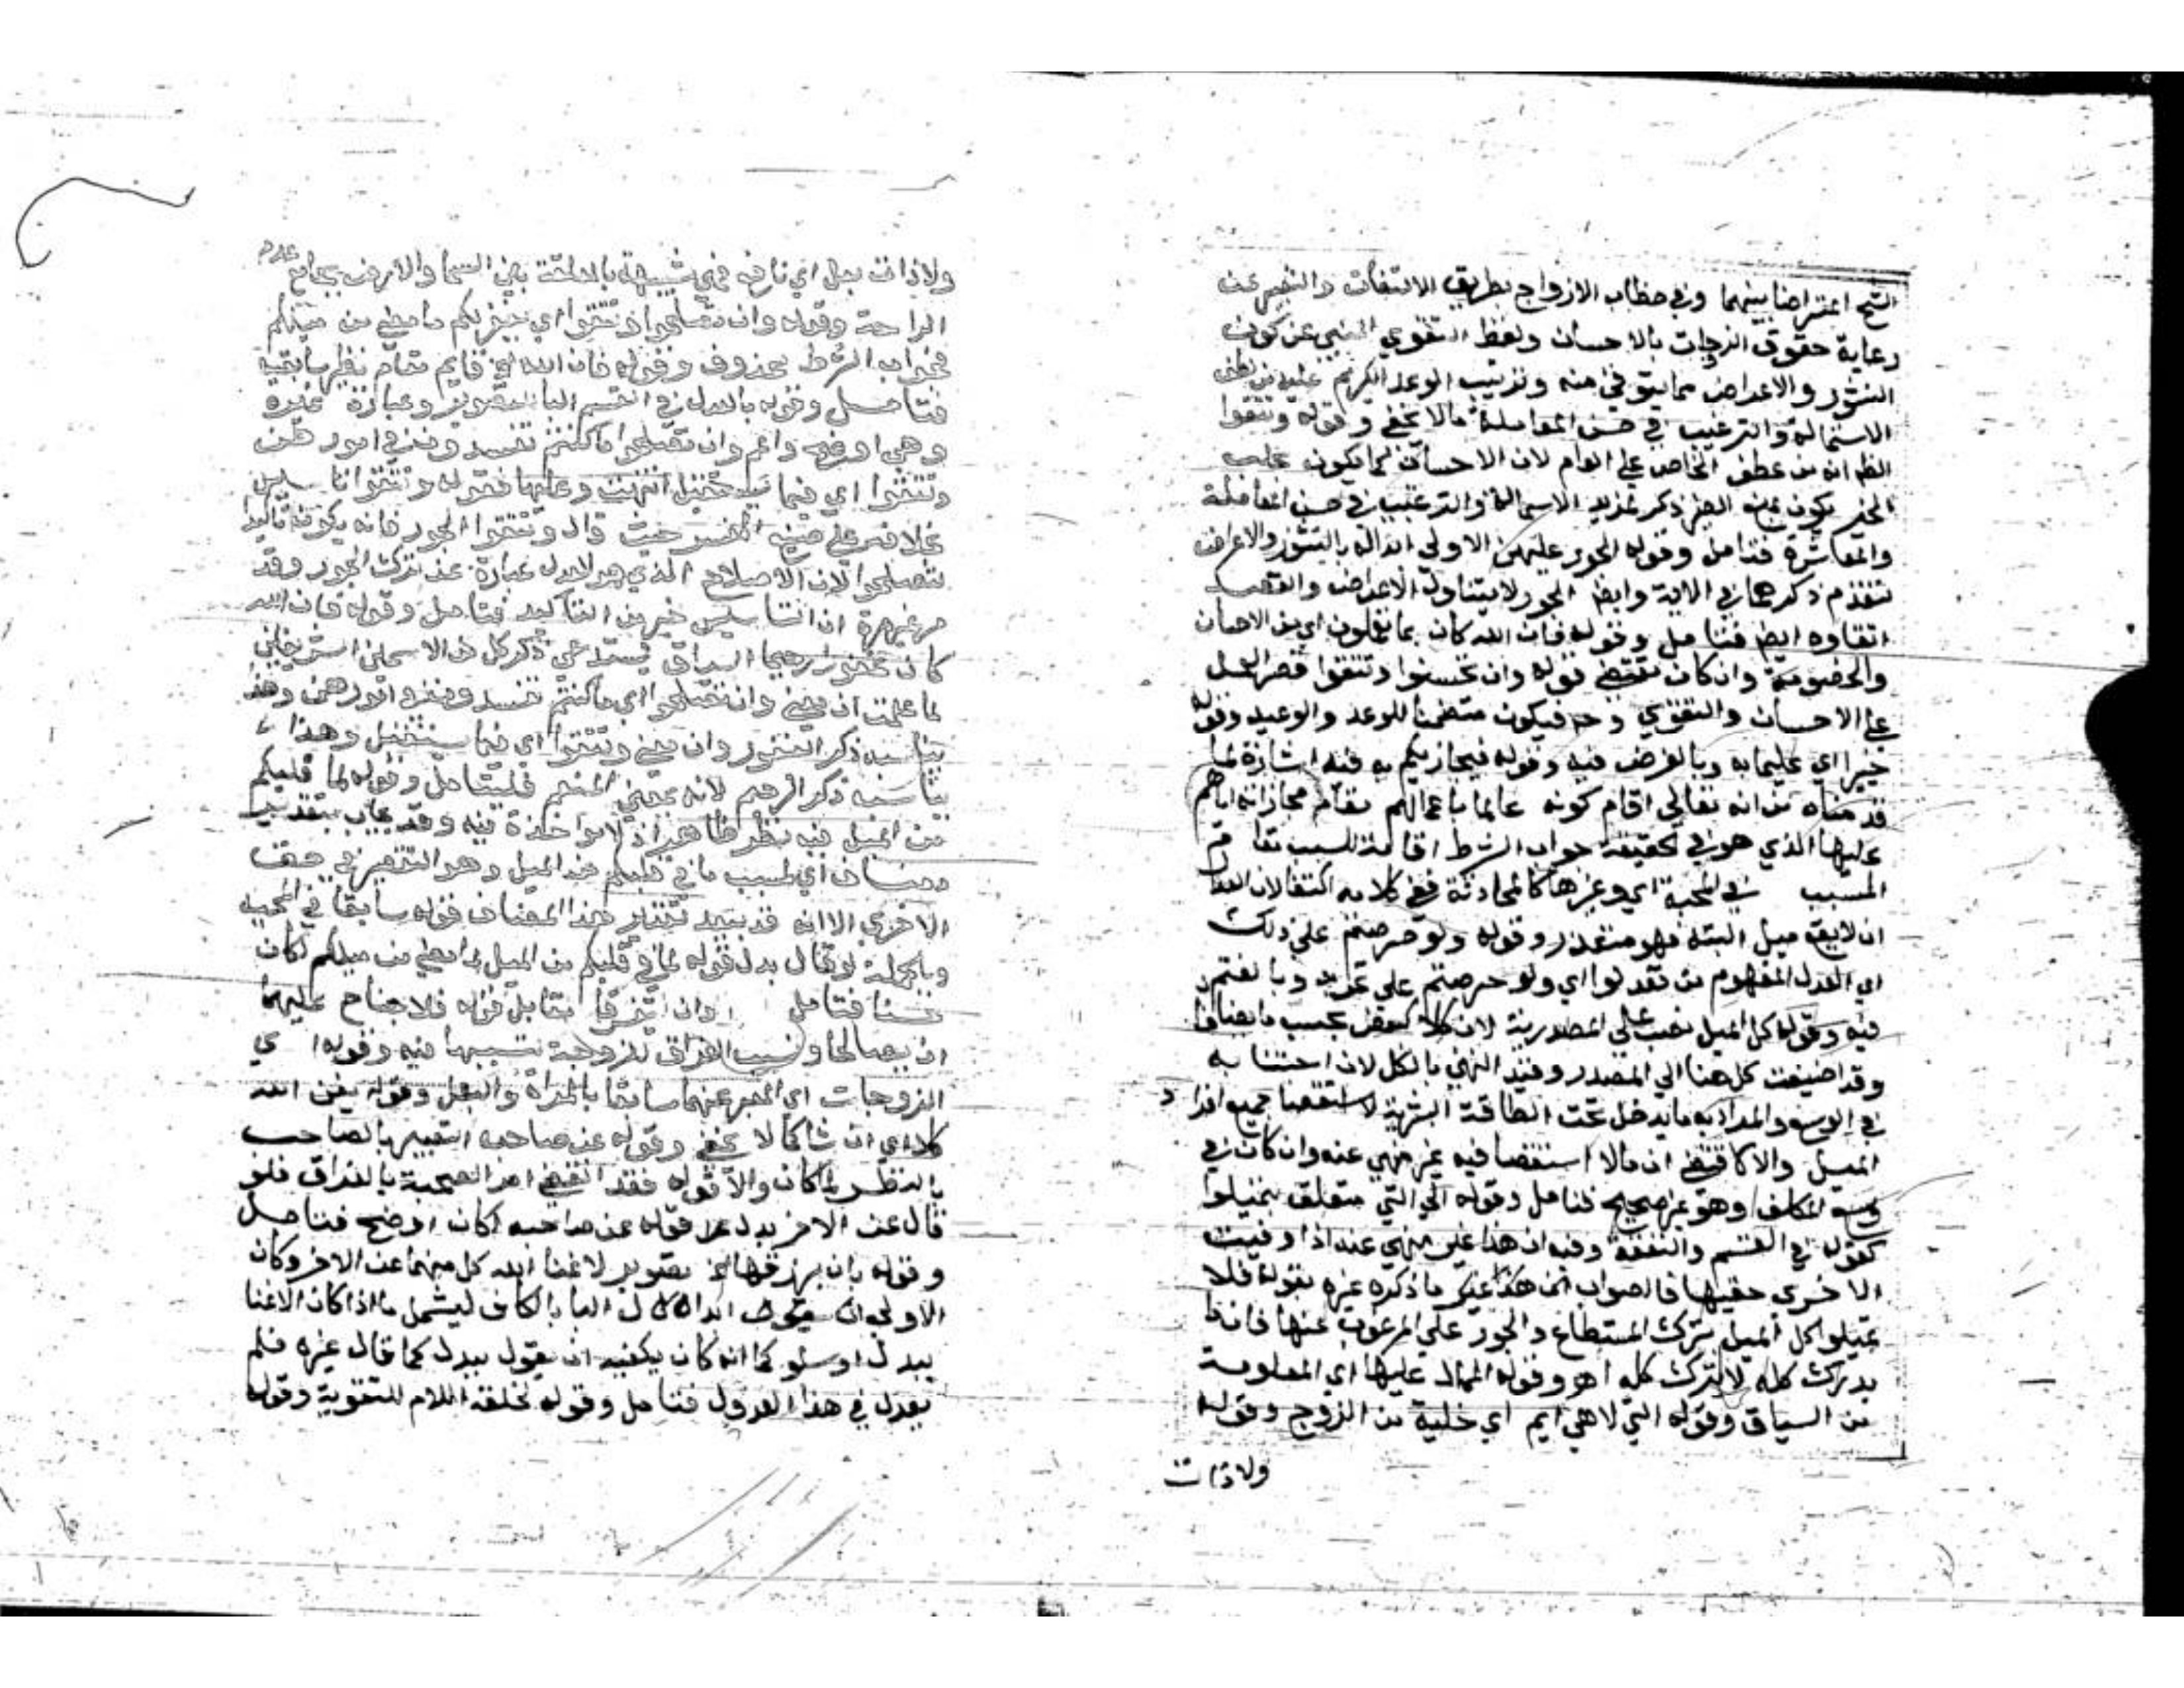 الشح اعتراضا بينهما وفي خطاب الازواج بطريق الالتفات والتعبير عن
رعاية حقوق الزوجات بالاحسان ولفظ التقوي المنبي عن كون
النشوز والاعراض مما يتوقي منه وترتيب الوعد الكريم عليه من لطف
الاستمالة والترغيب في حسن المعاملة مالا يخفي وقوله وتتقوا
الظ انه من عطف الخاص علي العام لان الاحسان كما يكون
الخير يكون ذكر لمزيد الاستمالة والترغيب في حسن المعاملة
والمعاشرة فتامل وقوله الجور عليهن الاولي ابداله بالنشوز والاعراض
لتقدم ذكرهما في الاية وايضا الجور لا يتناول الاعراض والقصد
اتقاوه ايضا فتامل وقوله فان الله كان بما تعملون اي من الاحسان
والخصومة وان كان مقتضي قوله وان تحسنوا وتتقوا قصر العمل
علي الاحسان والتقوي وح فيكون متضمنا للوعد والوعيد وقوله
خبيرا اي عليما به وبالغرض فيه وقوله فيجازيكم به فيه اشارة لما
قدمناه من انه تعالي اقام كونه عالما باعمالهم مقام مجازاته اياهم
عليها الذي هو في الحقيقة جواب الشرط اقامة للسبب مقام
المسبب في المحبة اي وغيرها كالمحادثة ففي كلامه اكتفا لان العدل
ان لا يقع ميل البتة فهو متعذر وقوله ولو حرصتم علي ذلك
اي العدل المفهوم من تعدلوا اي ولو حرصتم علي تحريه وبالغتم
فيه وقوله كل الميل نصب علي المصدرية لان كلا بحسب ما يضاف
وقد اضيفت كل هنا الي المصدر وقيد النهي بالكل لان اجتنابه
في الوسع والمراد به ما يدخل تحت الطاقة البشرية لاستقصا جميع افراد
الميل والا كا قتضي ان مالا استقصا فيه غير منهي عنه وان كان في
وسع المكلف وهو غير صحيح فتامل وقوله الي التي متعلق بتميلوا
كقوله في القسم والنفقة وفيه ان هذا غير منهي عنه اذا وفيت
الاخري حقيها فالصواب ما ذكره غيره بقوله فلا
تميلوا كل الميل بترك المستطاع والجور علي المرغوب عنها فان ما لا
يدرك كله لا يترك كله اهـ وقوله الممال عليها اي المعلومة
من السياق وقوله التي لا هي ايم اي خلية من الزوج وقوله
ولا ذات
ولا ذات بعل اي فهي شبيهة بالمعلقة بين السما والارض بجامع عدم
الراحة وقوله وان تصلحوا وتتقوا اي يغفر لكم ما مضي من ميلكم
فجواب الشرط محذوف وقوله فان الله الخ قايم مقامه نظير ما بقيه
فتامل وقوله بالعدل في القسم البا للتصوير وعبارة غيره
وهي اوضح واعم وان تصلحوا ما كنتم تفسدون في امورهن
وتتقوا اي فيما يستقبل انتهت وعليها فقوله وتتقوا تاسيس
بخلافه علي صنيع المفسر حيث قال وتتقوا الجور فانه يكون تاكيدا
لتصلحوا لان الاصلاح الذي هو العدل عبارة عن ترك الجور وقد
مر غير مرة ان التاسيس خير من التاكيد فتامل وقوله فان الله
كان غفورا رحيما السياق يستدعي ذكر كل من الاسمين الشريفين
لما علمت ان معني وان تصلحوا اي ما كنتم تفسدون في امورهن وهذا
يناسبه ذكر الغفور وان معني وتتقوا اي فيما يستقبل وهذا
يناسبه ذكر الرحيم لانه بمعني المنعم فليتامل وقوله لما قلبكم
من الميل فيه نظر ظاهر اذ لا مواخذة فيه وقد يجاب بتقدير
مضاف اي لسبب ما في قلبكم من الميل وهو التقصير في حق
الاخري الا انه قد يبعد تقدير هذا المضاف قوله سابقا في المحبة
وبالجملة لو قال بدل قوله لما في قلبكم من الميل لما مضي من ميلكم لكان
حسنا فتامل وان يتفرقا مقابل قوله فلا جناح عليهما
ان يصالحا ونسب الفراق للزوجة لتسببها فيه وقوله اي
الزوجات اي المعبر عنهما سابقا بالمراة والبعل وقوله يغن الله
كلا اي ان شا كما لا يخفي وقوله عن صاحبه التعبير بالصاحب
بالنظر لما كان والا فقوله فقد انقضي امر الصحبة بالفراق فلو
قال عن الاخر بدل عن قوله عن صاحبه لكان اوضح فتامل
وقوله بان يرزقها الخ تصوير لاغنا الله كل منهما عن الاخر وكان
الاولي له ابدال البا بالكاف ليشمل ما اذا كان الاغنا
ببدل او سلو كما انه كان يكفيه ان يقول ببدل كما قال غيره فلم
يعدل في هذا العدول فتامل وقوله لخلقه اللام للتقوية وقوله